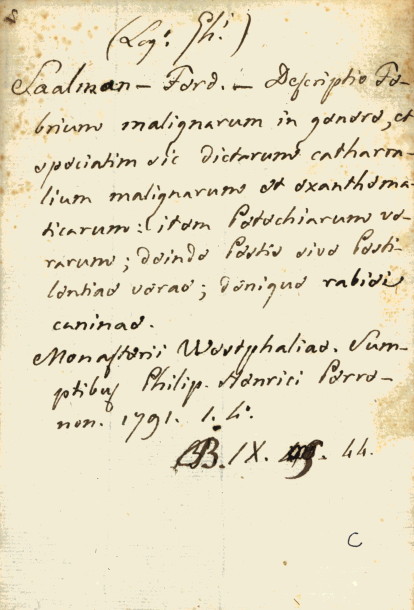 S
(Log: Ph:)
Saalman – Ferd. – Descriptio Fe-
brium malignarum in genere, et
speciatim sic dictarum catharra-
lium malignarum et exanthema-
ticarum: item Petechiarum ve-
rarum; deinde Pestis sive Pesti-
lentiae verae; denique rabiei
caninae.
Monasterii Westphaliae. Sum-
ptibus Philip. Henrici Perre-
non. 1791. 1. 4°.
B. IX. 44.
C